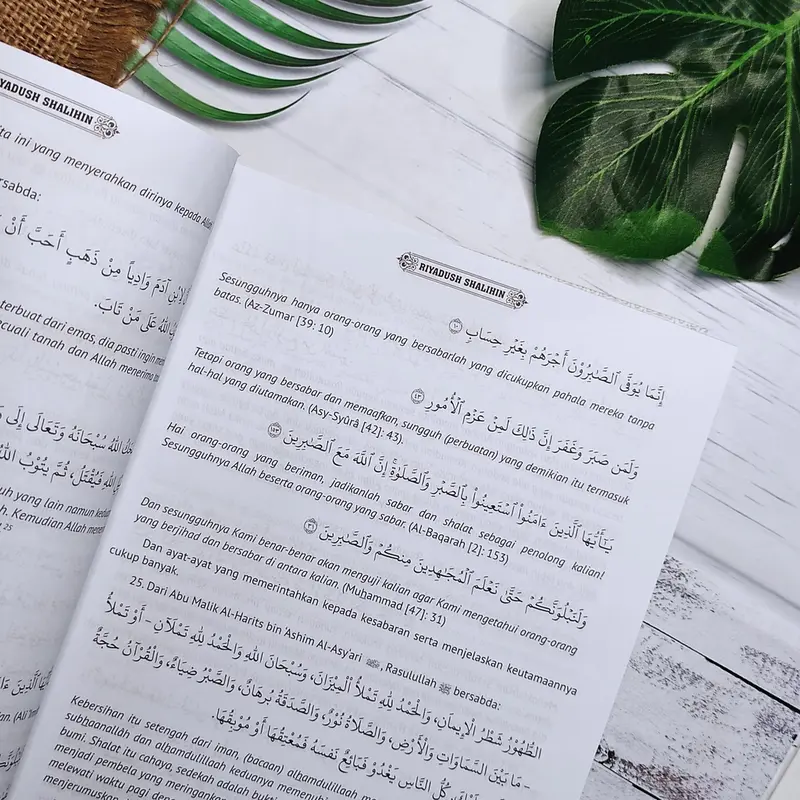 RIYADUSH SHALIHIN
ita ini yang menyerahkan dirinya kepada Allah
ersabda:
لِابْنِ آدَمَ وَادِياً مِنْ ذَهَبٍ أَحَبَّ أَنْ
اللهُ عَلَى مَنْ تَابَ.
terbuat dari emas, dia pasti ingin
ecuali tanah dan Allah menerima
اللهُ سُبْحَانَهُ وَتَعَالَى إِلَى
اللهِ فَيُقْتَلُ، ثُمَّ يَتُوْبُ اللهُ
uh yang lain namun
h. Kemudian Allah
25
RIYADUSH SHALIHIN
إِنَّمَا يُوَفَّى ٱلصَّٰبِرُونَ أَجْرَهُم بِغَيْرِ حِسَابٍ ١٠
Sesungguhnya hanya orang-orang yang bersabarlah yang dicukupkan pahala mereka tanpa
batas. (Az-Zumar [39: 10)
وَلَمَن صَبَرَ وَغَفَرَ إِنَّ ذَٰلِكَ لَمِنْ عَزْمِ ٱلْأُمُورِ ٤٣
Tetapi orang yang bersabar dan memaafkan, sungguh (perbuatan) yang demikian itu termasuk
hal-hal yang diutamakan. (Asy-Syûrâ [42]: 43).
يَٰٓأَيُّهَا ٱلَّذِينَ ءَامَنُوا۟ ٱسْتَعِينُوا۟ بِٱلصَّبْرِ وَٱلصَّلَوٰةِ إِنَّ ٱللَّهَ مَعَ ٱلصَّٰبِرِينَ ١٥٣
Hai orang-orang yang beriman, jadikanlah sabar dan shalat sebagai penolong kalian!
Sesungguhnya Allah beserta orang-orang yang sabar. (Al-Baqarah [2]: 153)
وَلَنَبْلُوَنَّكُمْ حَتَّىٰ نَعْلَمَ ٱلْمُجَٰهِدِينَ مِنكُمْ وَٱلصَّٰبِرِينَ ٣١
Dan sesungguhnya Kami benar-benar akan menguji kalian agar Kami mengetahui orang-orang
yang berjihad dan bersabar di antara kalian. (Muhammad [47]: 31)
Dan ayat-ayat yang memerintahkan kepada kesabaran serta menjelaskan keutamaannya
cukup banyak.
25. Dari Abu Malik Al-Harits bin Ashim Al-Asy'ari ؓ, Rasulullah ﷺ bersabda:
الطُّهُوْرُ شَطْرُ الْإِيمَانِ، وَالْحَمْدُ لِلهِ تَمْلَأُ الْمِيْزَانَ، وَسُبْحَانَ اللهِ وَالْحَمْدُ لِلهِ تَمْلَآنِ - أَوْ تَمْلَأُ
- مَا بَيْنَ السَّمَاوَاتِ وَالْأَرْضِ، وَالصَّلَاةُ نُوْرٌ، وَالصَّدَقَةُ بُرْهَانٌ، وَالصَّبْرُ ضِيَاءٌ، وَالْقُرْآنُ حُجَّةٌ
كُلُّ النَّاسِ يَغْدُوْ فَبَائِعٌ نَفْسَهُ فَمُعْتِقُهَا أَوْ مُوْبِقُهَا.
Kebersihan itu setengah dari iman, (bacaan) albamdulillaah
subhaanallâh dan albamdulillaah keduanya memenuhi
bumi. Shalat itu cahaya, sedekah adalah
menjadi pembela yang meringankan
melewati waktu pagi
menjerumuskan